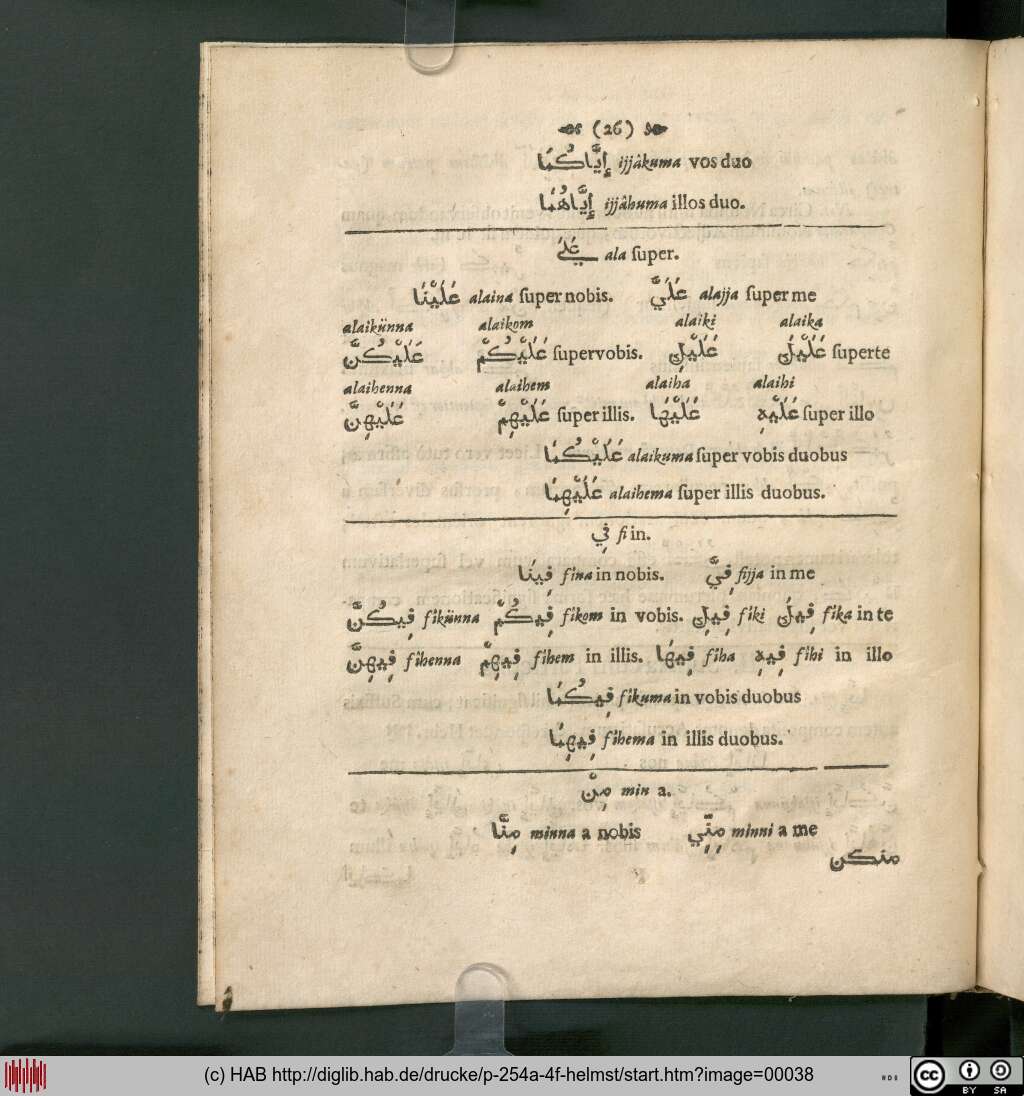 (26)
إِيَّاكُمَا ijjâkuma vos duo
إِيَّاهُمَا ijjâhuma illos duo.
عَلَي ala ſuper.
عَلَيْنَا alaina ſuper nobis. عَلَيَّ alajja ſuper me
alaikünna alaikom alaiki alaika
عَلَيْكُنَّ عَلَيْكُمْ ſupervobis. عَلَيْكِ عَلَيْكَ ſuperte
alaihenna alaihem alaiha alaihi
عَلَيْهِنَّ عَلَيْهِمْ ſuper illis. عَلَيْهَا عَلَيْهِ ſuper illo
عَلَيْكُمَا alaikuma ſuper vobis duobus
عَلَيْهِمَا alaihema ſuper illis duobus.
فِي fi in.
فِينَا fina in nobis. فِيَّ fijja in me
فِيكُنَّ fikünna فِيكُمْ fikom in vobis. فِيكِ fiki فِيكَ fika in te
فِيهِنَّ fihenna فِيهِمْ fihem in illis. فِيهَا fiha فِيهِ fihi in illo
فِيكُمَا fikuma in vobis duobus
فِيهِمَا fihema in illis duobus.
مِنْ min a.
مِنَّا minna a nobis مِنِّي minni a me
منكن
(c) HAB http://diglib.hab.de/drucke/p-254a-4f-helmst/start.htm?image=00038
cc BY SA